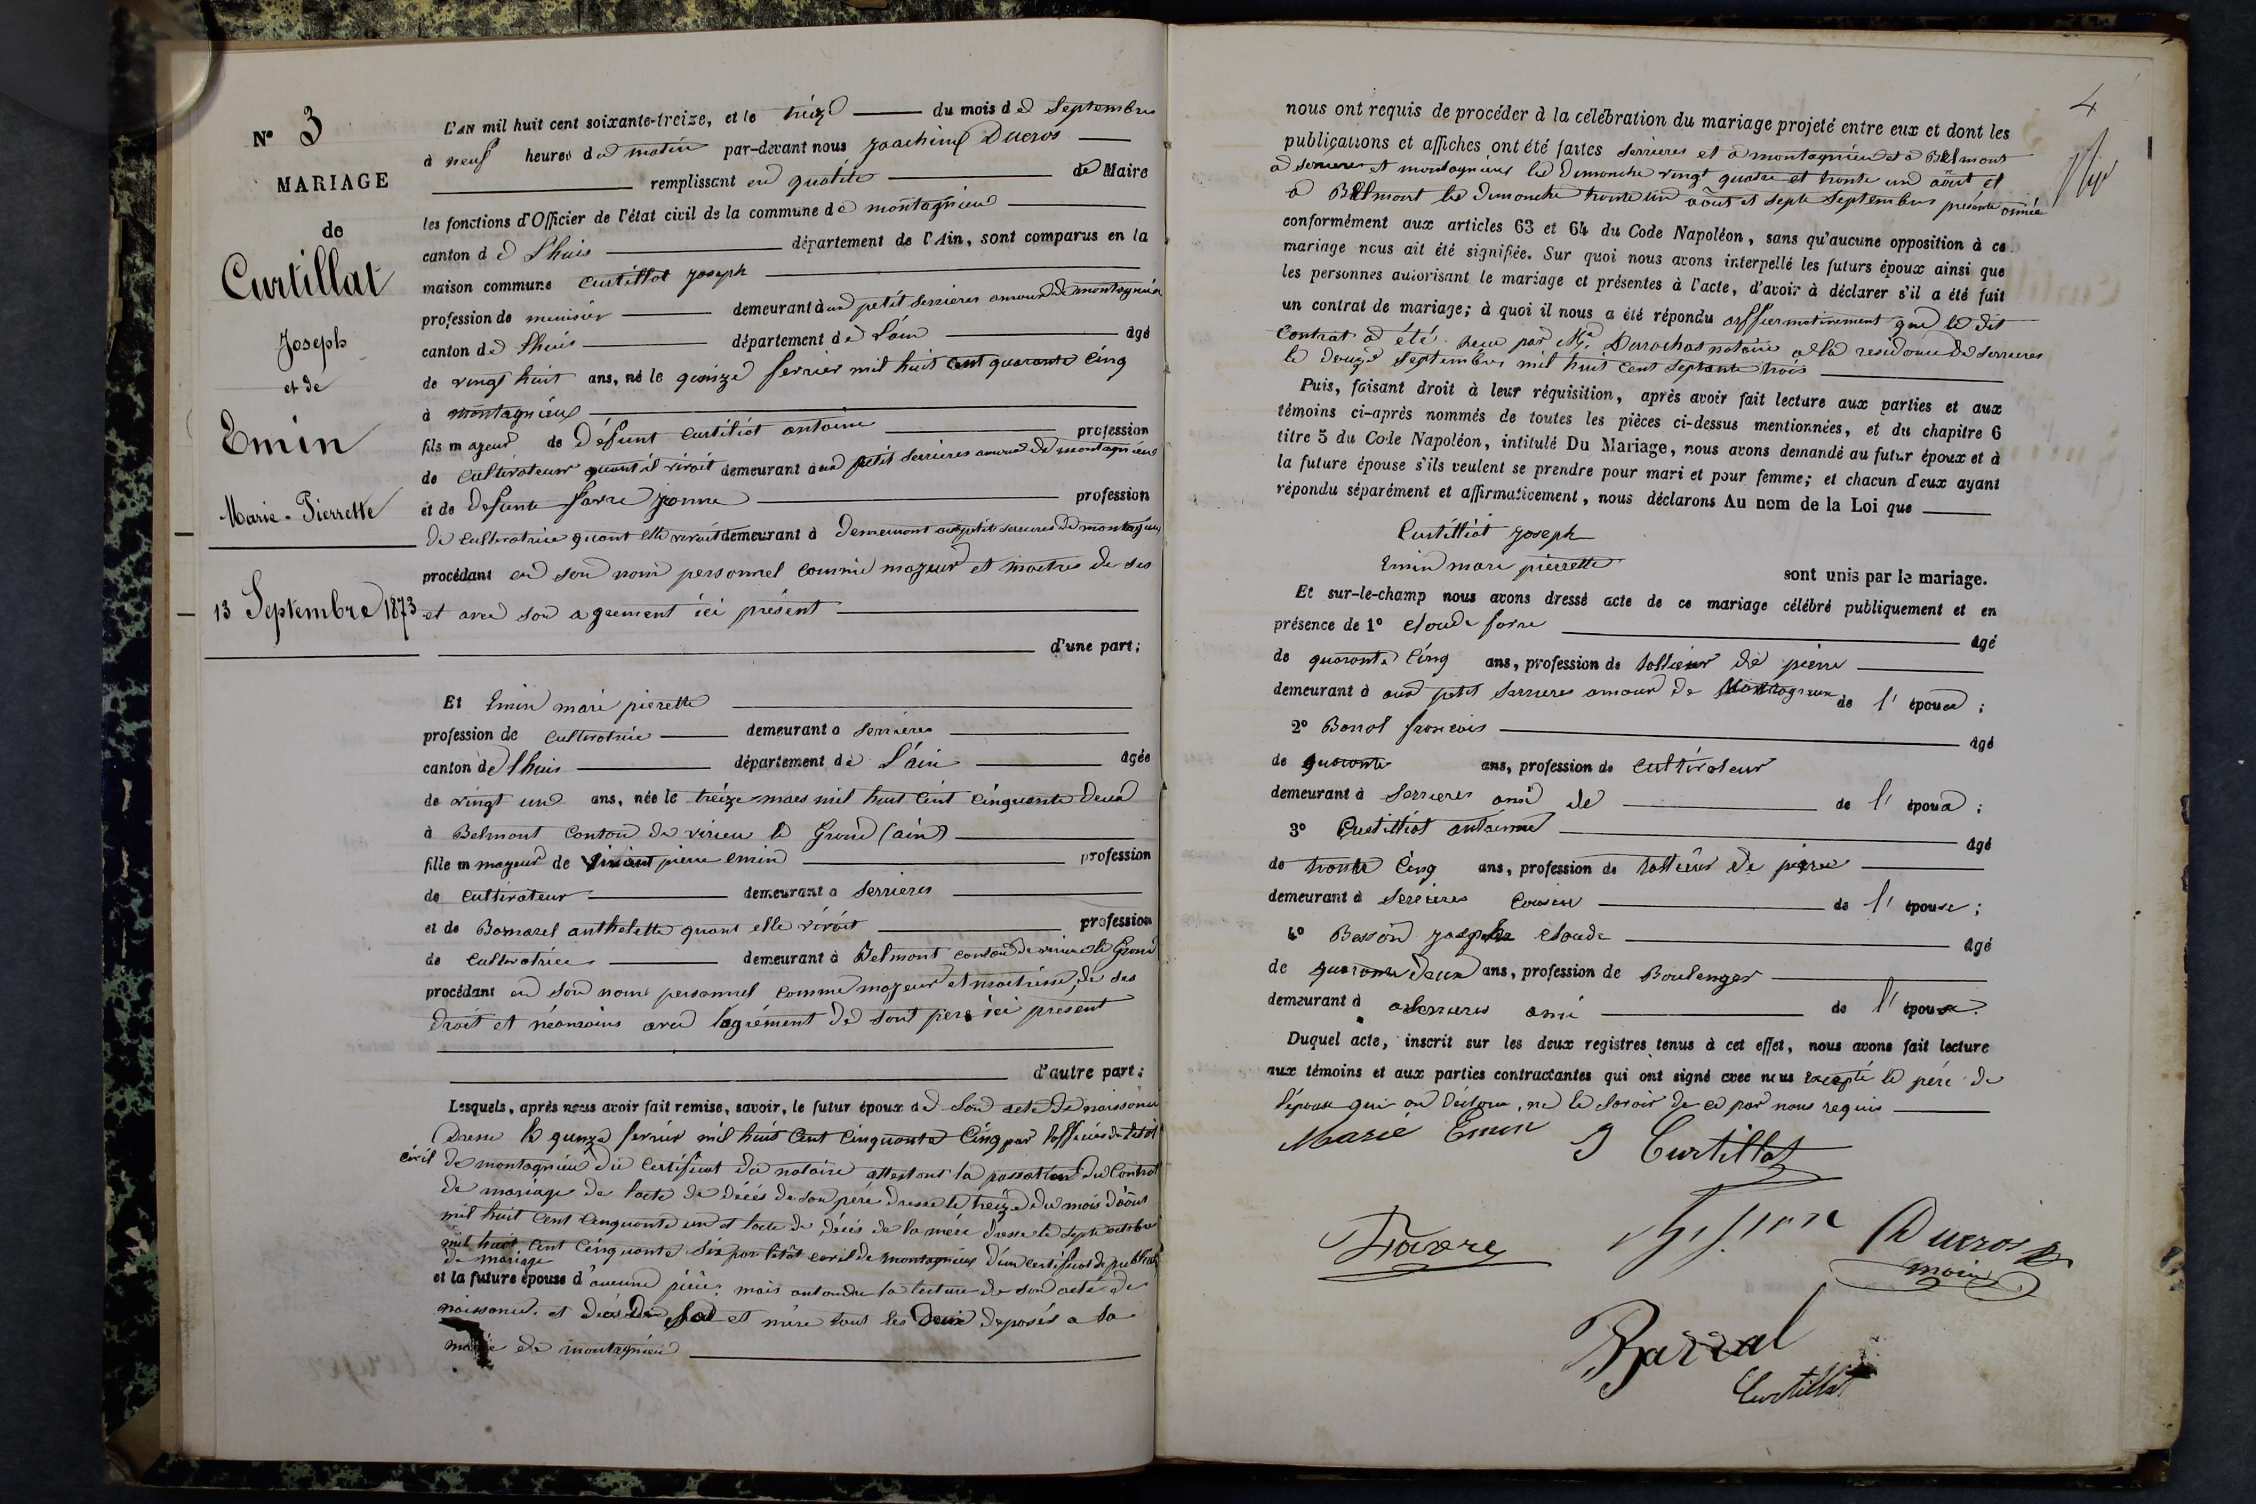 N° 3
MARIAGE
de
Curtillat
Joseph
et de
Emin
Marie-Pierrette
13 Septembre 1873
L'AN mil huit cent soixante-treize, et le treize du mois de Septembre
à neuf heures du matin par-devant nous Joachim Ducros
remplissant en qualité de Maire
les fonctions d'Officier de l'état civil de la commune de montagnieu
canton de Lhuis département de l'Ain, sont comparus en la
maison commune Curtillat Joseph
profession de menisier demeurant à au petit serrieres ameau de montagnieu
canton de Lhuis département de L'ain âgé
de vingt huit ans, né le quinze fevrier mil huit cent quarante cinq
à montagnieu
fils mageur de Défunt Curtiliat antoine profession
de Cultivateur quant il vivoit demeurant à au petit Serrieres ameau de montagnieu
et de Defunte favre Janne profession
de cultivatrice quant elle vivoit demeurant à Demeurant au petit serrieres de montagnieu
procédant en son nom personnel comme mageur et maitres de ses
et avec son agrement ici présent
d'une part;
Et Emin mari pierette
profession de Cultivatrice demeurant a Serrieres
canton de Lhuis département de L'ain âgée
de vingt un ans, née le treize mars mil huit cent cinquante deux
à Belmont Canton de virieu le Grand (ain)
fille m mageur de vivant pierre emin profession
de cultivateur demeurant a Serrieres
et de Bornarel anthelette quant elle vivoit profession
de Cultivatrice demeurant à Belmont canton de virieu le Grand
procédant en son nom personnel comme mageur et maitresse de ses
droit et néomoins avec l'agrément de sont pere ici present
d'autre part;
Lesquels, après nous avoir fait remise, savoir, le futur époux de Son acte de naissance
Dressé le quinze fevrier mil huit Cent Cinquante Cinq par l'officier de l'état
civil de montagnieu du Certificat du notaire attestant la passation du Contrat
de mariage de l'acte de décés de son pere dressé le treize du mois d'août
mil huit Cent Cinquante un et l'acte de décés de la mére dressé le Sept octobre
mil huit Cent Cinquante Six par l'état civil de montagnieux d'un certificat de publicat
de mariage
et la future épouse d'aucune piéce mais entendu la lecture de son acte de
naissance et décés de et mére tout les Deux deposés a la
mairie de montagnieu
4
nous ont requis de procéder à la célébration du mariage projeté entre eux et dont les
publications et affiches ont été faites serrieres et a montagnieu et a Belmont
a serrieres et montagnieus les Dimanche vingt quatre et trente un août et
a Belmont les Dimanche trente un août et sept Septembre présente année
conformément aux articles 63 et 64 du Code Napoléon, sans qu'aucune opposition à ce
mariage nous ait été signifiée. Sur quoi nous avons interpellé les futurs époux ainsi que
les personnes autorisant le mariage et présentes à l'acte, d'avoir à déclarer s'il a été fait
un contrat de mariage; à quoi il nous a été répondu affirmativement que le dit
Contrat a été recu par Me Durochas notaire a la residance de serrieres
le douze Septembre mil huit Cent Septante trois
Puis, faisant droit à leur réquisition, après avoir fait lecture aux parties et aux
témoins ci-après nommés de toutes les pièces ci-dessus mentionnées, et du chapitre 6
titre 5 du Code Napoléon, intitulé Du Mariage, nous avons demandé au futur époux et à
la future épouse s'ils veulent se prendre pour mari et pour femme; et chacun d'eux ayant
répondu séparément et affirmativement, nous déclarons Au nom de la Loi que
Curtilliat Joseph
Emin mari pierrette
sont unis par le mariage.
Et sur-le-champ nous avons dressé acte de ce mariage célébré publiquement et en
présence de 1° Cloude favre âgé
de quarante Cinq ans, profession de tallieur de pierre
demeurant à au petit Serrieres ameau de Montagnieux de l'époux;
2° Barral francois âgé
de quarante ans, profession de cultivateur
demeurant à Serrieres ami de de l'époux;
3° Curtilliat antoinne âgé
de trente Cinq ans, profession de tallieur de pierre
demeurant à Serrieres Cousin de l'épouse;
4° Besson Josephe cloude âgé
de quarante deux ans, profession de Boulenger
demeurant à a Serrieres ami de l'épouse
Duquel acte, inscrit sur les deux registres tenus à cet effet, nous avons fait lecture
aux témoins et aux parties contractantes qui ont signé avec nous excepté le père de
l'épouse qui on declare ne le savoir de ce par nous requis
Marie Emin J Curtillat
Favre Besson Ducros
maire
Barral
Curtillat